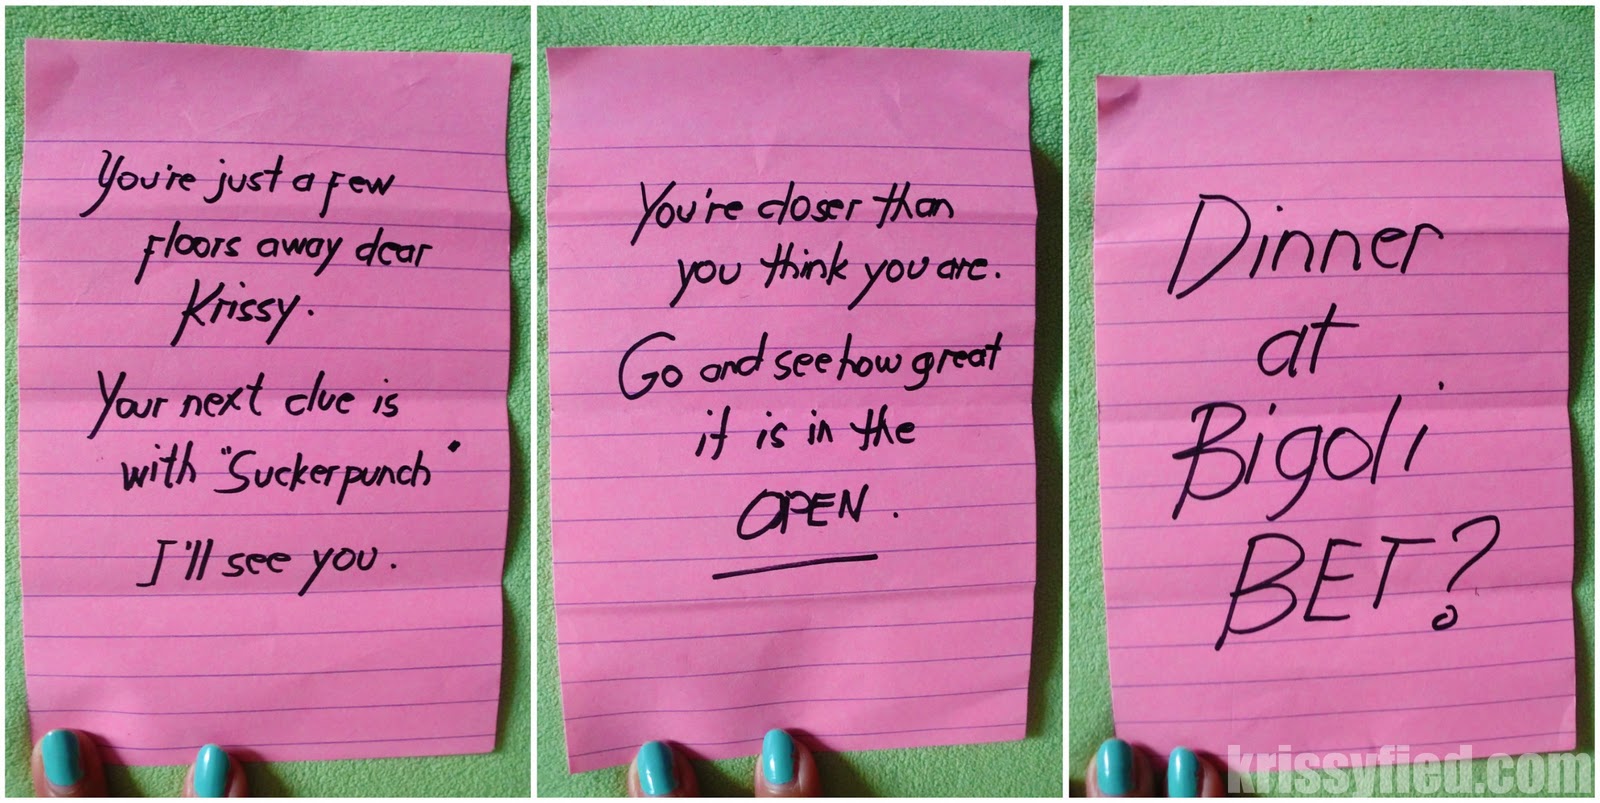 You're just a few
floors away dear
Krissy.
Your next clue is
with "Suckerpunch"
I'll see you.
You're closer than
you think you are.
Go and see how great
it is in the
OPEN.
Dinner
at
Bigoli
BET?
krissyfied.com